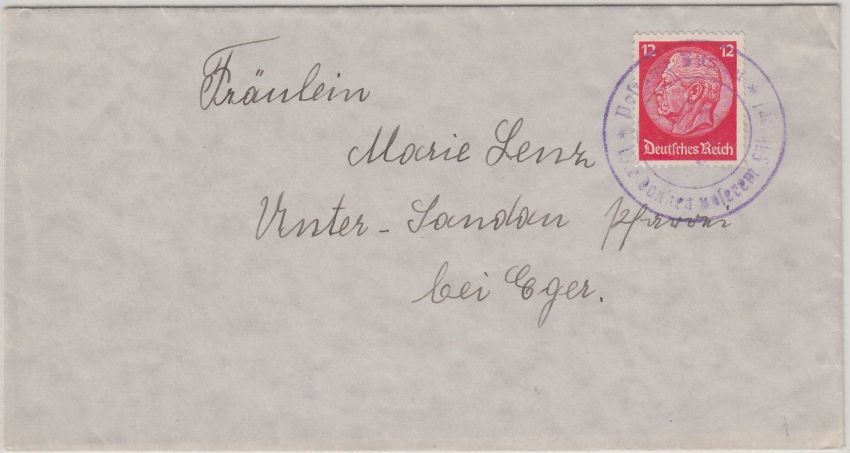 12 12
Deutsches Reich
Wir danken unserem
Fräulein
Marie Lenz
Unter-Sandau Pfarrei
bei Eger.